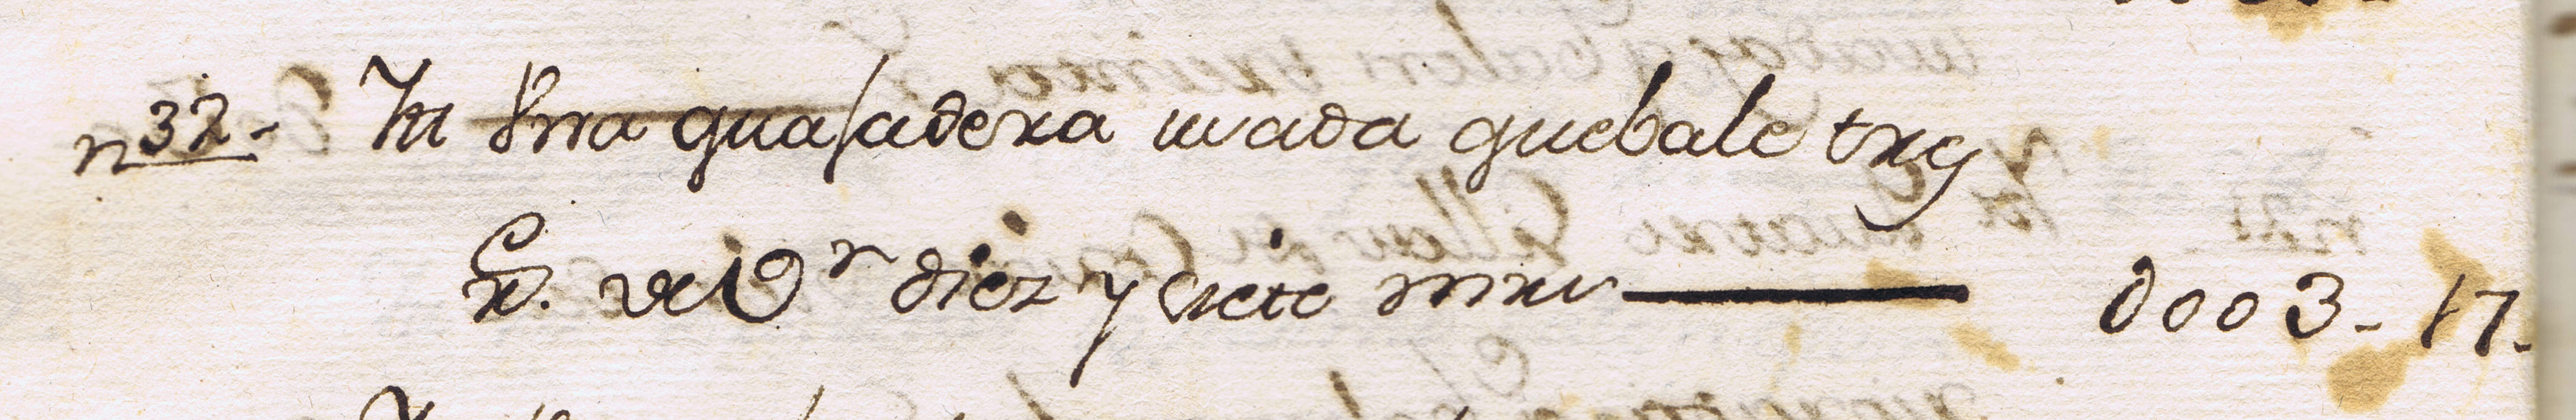 n32- Itt Vna quajadera usada quebale trej
Rs. de Vn diez y siete mrs 0003-17-